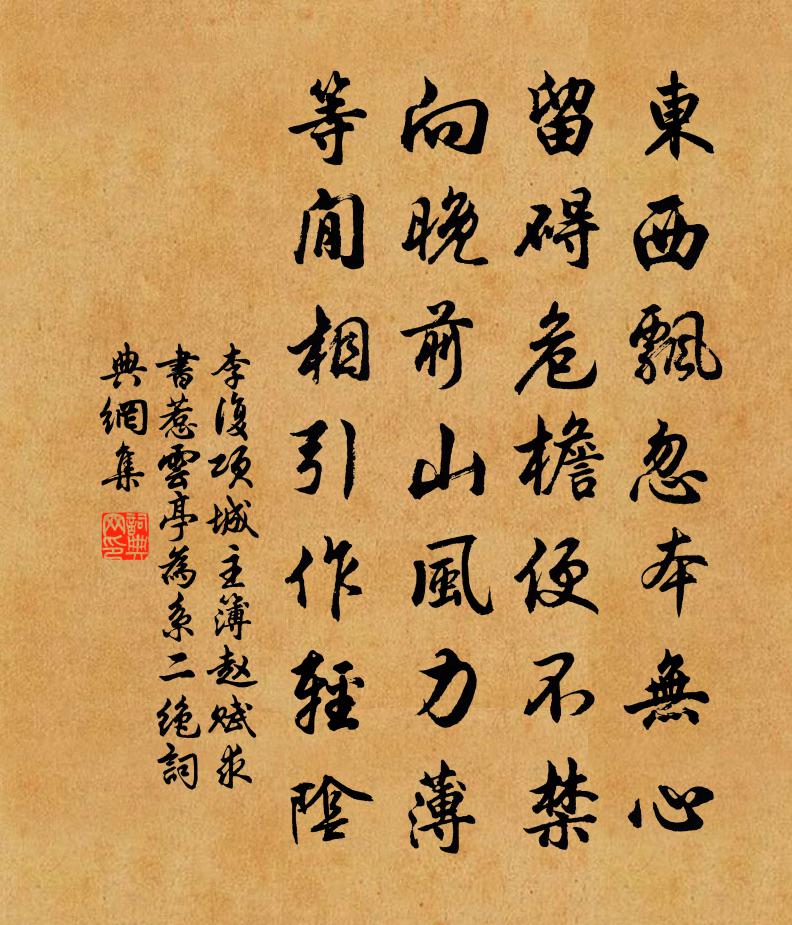 東西飄忽本無心
留碍危檐便不禁
向晚前山風力薄
等閒相引作輕陰
李復項城主簿赵赋求
書惹雲亭為系二絶詞
典網集
詞典网印